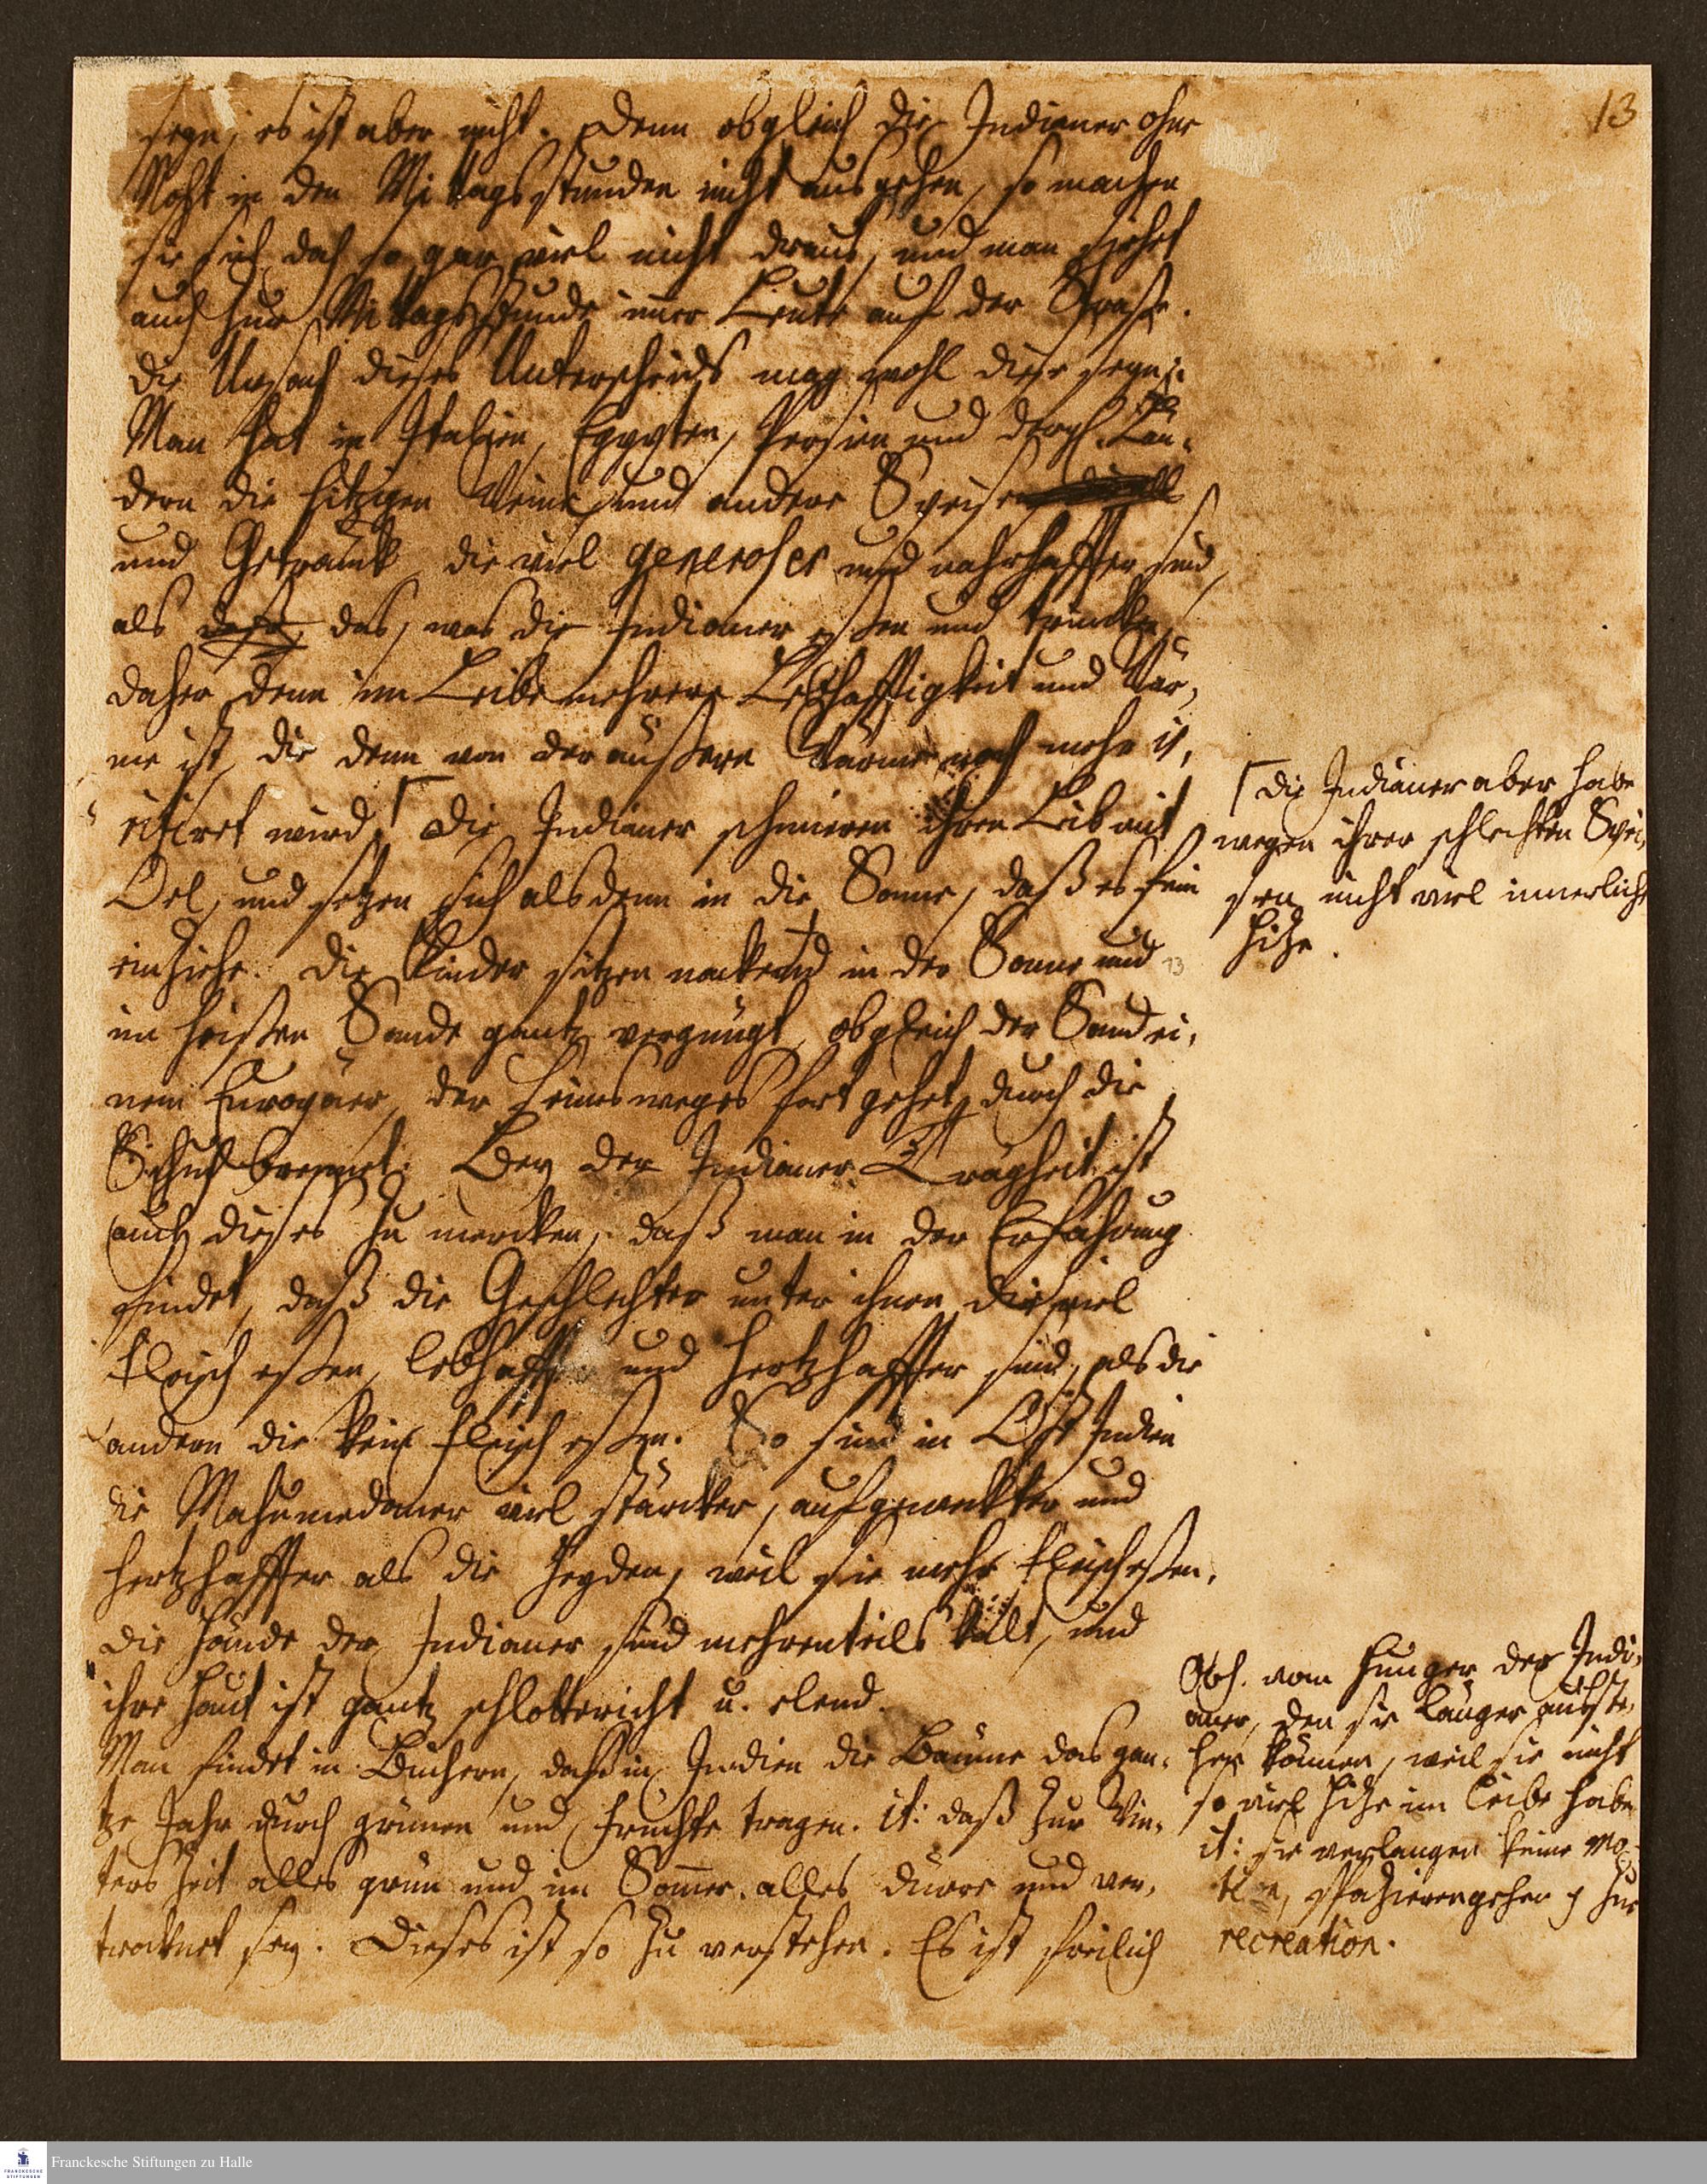 13
seyn; es ist aber nicht. Denn obgleich die Indianer ohne
Noht in den Mittagsstunden nicht ausgehen, so machen
sie sich doch so gar viel nicht draus, und man siehet
auch zur Mittagsstunde imer Leute auf der Strasse.
Die Ursach dieses Unterscheids mag wohl diese seyn:
Man hat in Italien, Egypten, Persien und dergl. Län-
dern die hitzigen Weine und andere Speisen
und Getränck, die viel generoser und nahrhaffter sind,
als das, was die Indianer essen und trincken,
daher denn im Leibe mehrere Lebhafftigkeit und Wär-
me ist, die denn von der äußern Wärme noch mehr ir-
ritiret wird. Die Indianer schmieren ihren Leib mit
Oel, und setzen sich alsdenn in die Sonne, daß es fein
einziehe. Die Kinder sitzen nackend in der Sonne und
im heissen Sande gantz vergnügt, obgleich der Sand ei-
nem Europäer, der seines weges fort gehet, durch die
Schuh brennet. Bey der Indianer Trägheit ist
auch dieses zu mercken, daß man in der Erfahrung
findet, daß die Geschlechter unter ihnen, die viel
Fleisch essen, und hertzhaffter sind, als die
andern die kein Fleisch essen. So sind in Ost Indien
die Mahumedaner viel stärcker, aufgeweckter und
hertzhaffter als die Heyden, weil sie mehr Fleisch essen.
Die Hände der Indianer sind mehrenteils kalt, und
ihre Haut ist gantz schlottericht u. elend.
Man findet in Büchern, daß in Indien die Bäume das gan-
tze Jahr durch grünen und Früchte tragen. it: daß zur Win-
ters Zeit alles grün und im Somer alles dürre und ver-
trocknet sey. Dieses ist so zu verstehen. Es ist freilich
Die Indianer aber habe
wegen ihrer schlechten Spei-
sen nicht viel innerliche
Hitze.
13
Obs. vom Hunger der Indi-
aner, den sie länger ausste-
hen können, weil sie nicht
so viel Hitze im Leibe habe
it: sie verlangen keine mo-
spazierengehen zur
recreation.
Franckesche Stiftungen zu Halle
FRANCKESCHE
STIFTUNGEN